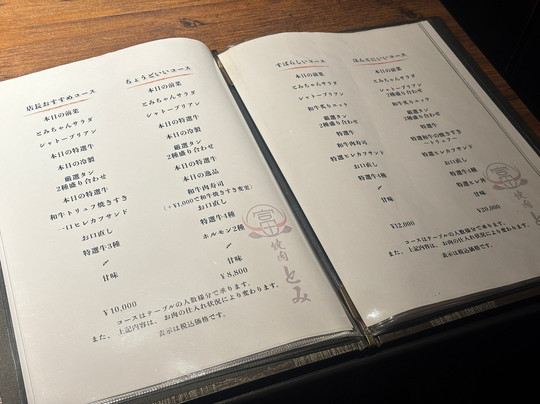 店長おすすめコース
本日の前菜
とみちゃんサラダ
シャトーブリアン
本日の特選牛
本日の冷製
厳選タン
2種盛り合わせ
本日の特選牛
和牛トリュフ焼きすき
一口ヒレカフサンド
お口直し
特選牛3種
〃
甘味
¥10,000
ちょうどいいコース
本日の前菜
とみちゃんサラダ
シャトーブリアン
本日の特選牛
本日の冷製
厳選タン
2種盛り合わせ
本日の特選牛
本日の逸品
和牛肉寿司
(+¥1,000で和牛焼きすき変更)
お口直し
特選牛1種
ホルモン2種
〃
甘味
¥8,800
コースはテーブルの人数様分で承ります。
また、上記内容は、お肉の仕入れ状況により変わります。
表示は税込価格です。
富
焼肉とみ
すばらしいコース
本日の前菜
とみちゃんサラダ
シャトーブリアン
和牛炙りユッケ
厳選タン
2種盛り合わせ
特選牛
和牛肉寿司
特選ヒレカフサンド
お口直し
特選牛4種
〃
甘味
¥12,000
ほんとにいいコース
本日の前菜
とみちゃんサラダ
シャトーブリアン
和牛炙りユッケ
厳選タン
2種盛り合わせ
特選牛
特選和牛の焼きすき
お口直し
甘味
¥20,000
コースはテーブルの人数様分で承ります。
また、上記内容は、お肉の仕入れ状況により変わります。
表示は税込価格です。
富
焼肉とみ